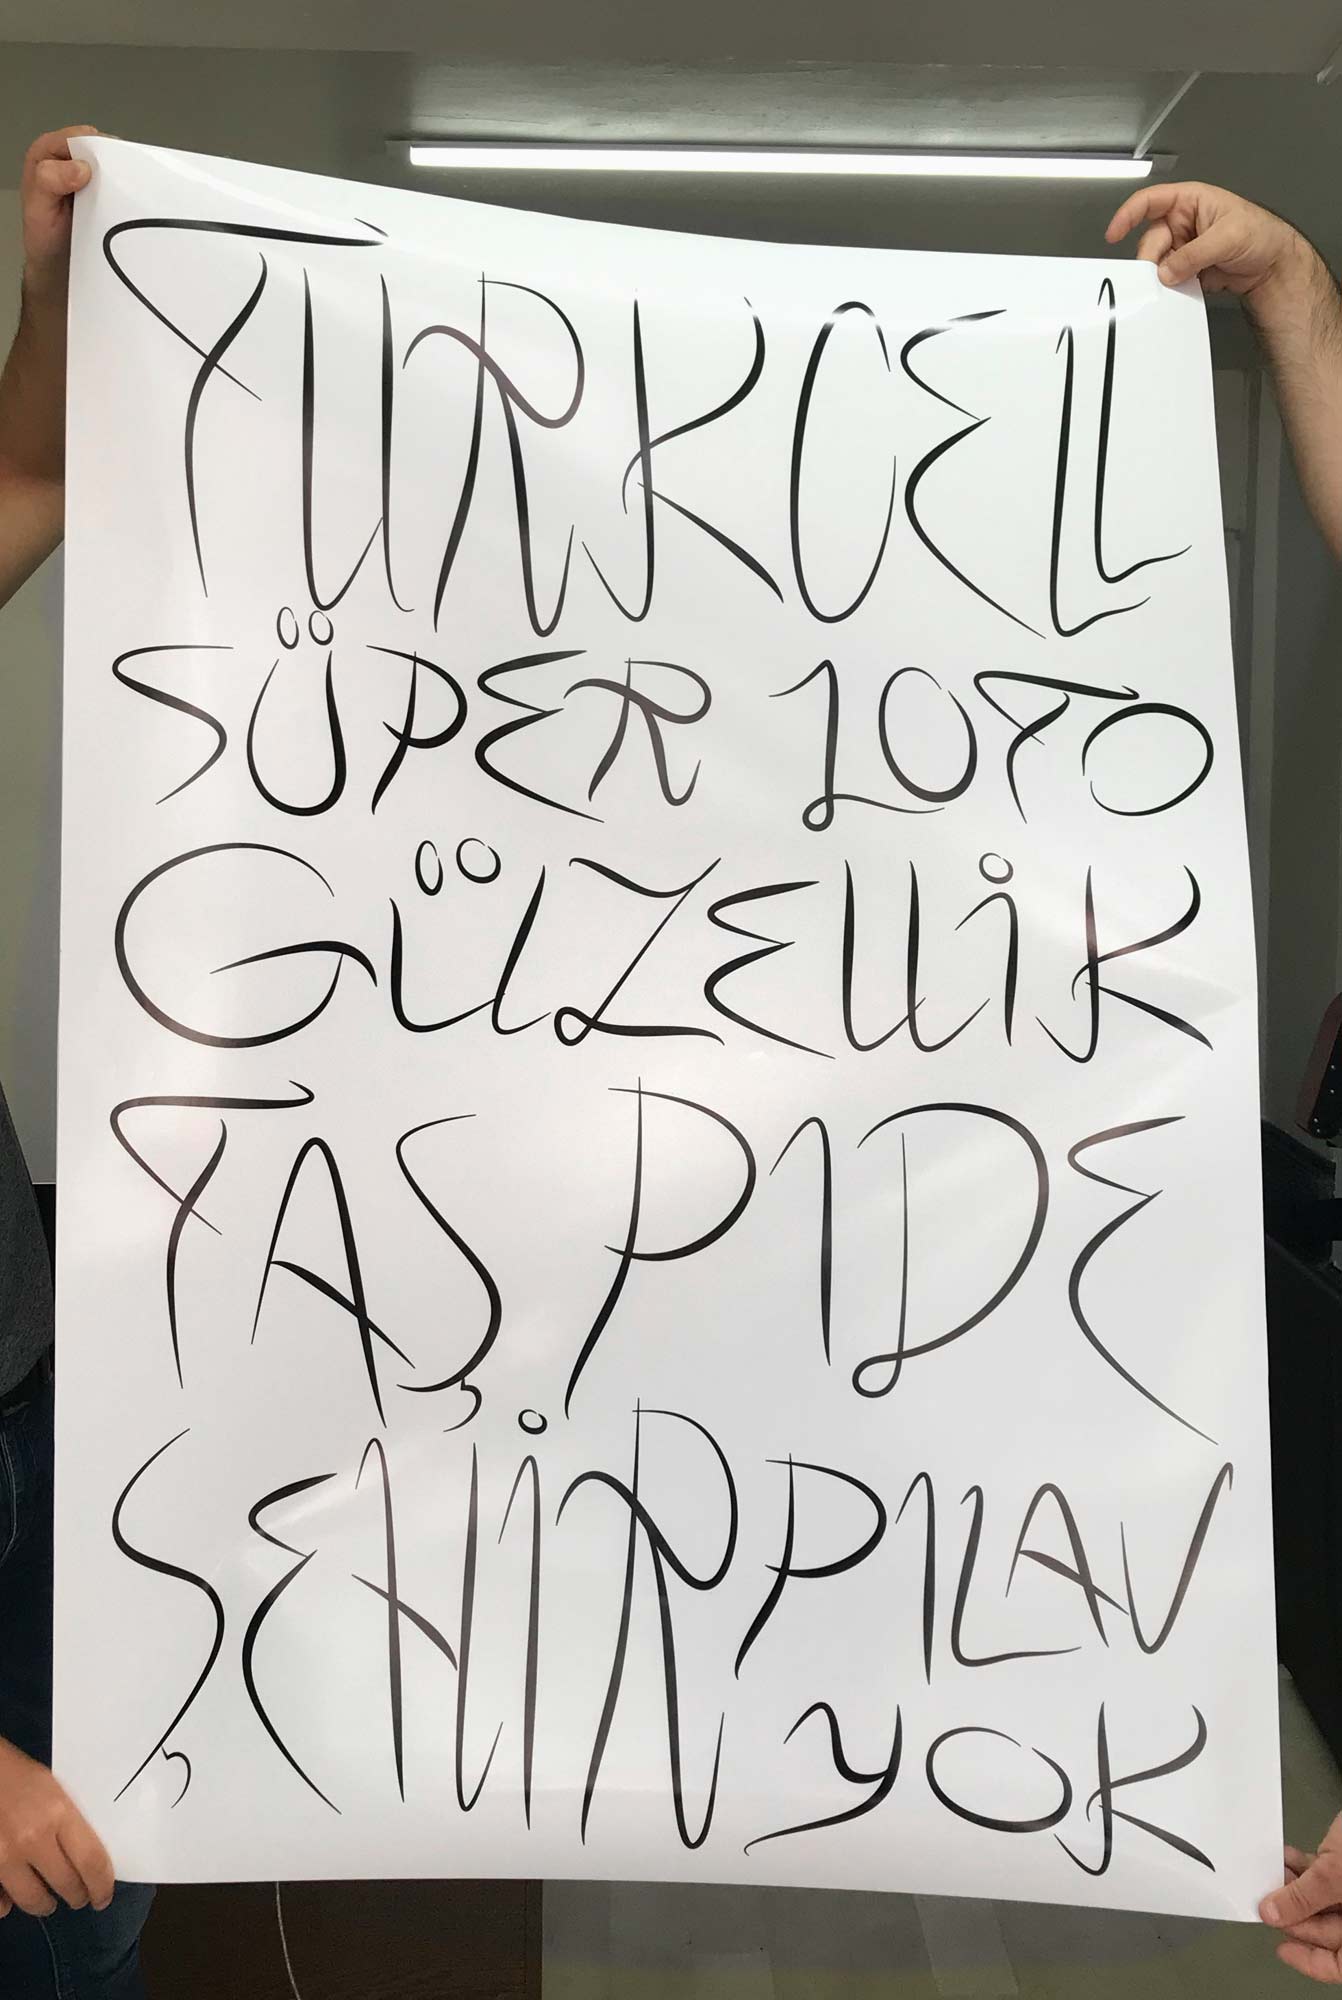 TURKCELL
SÜPER LOTO
GÜZELLİK
TAŞ PIDE
ŞEHİR PILAV
YOK